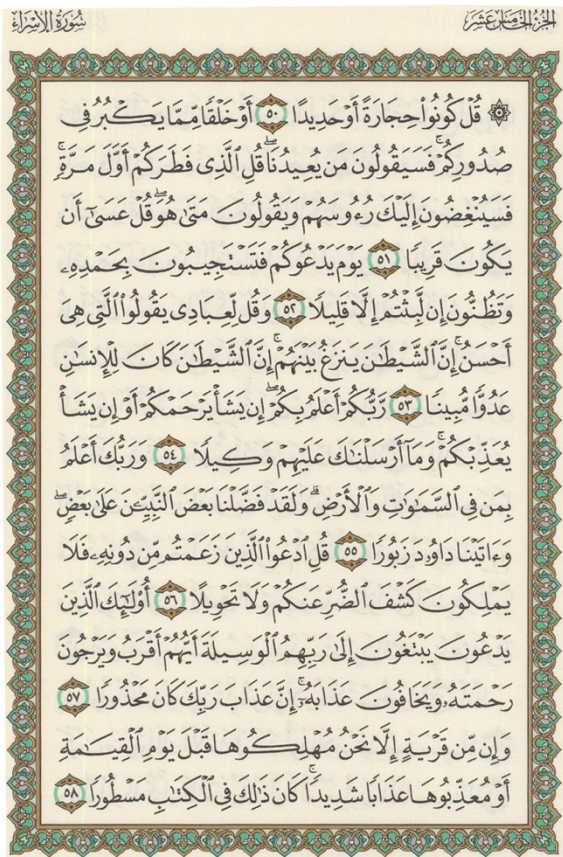 الجزء الخامس عشر
سورة الإسراء
۞ قُلْ كُونُوا۟ حِجَارَةً أَوْ حَدِيدًا ٥٠ أَوْ خَلْقًا مِّمَّا يَكْبُرُ فِى
صُدُورِكُمْ ۚ فَسَيَقُولُونَ مَن يُعِيدُنَا ۖ قُلِ ٱلَّذِى فَطَرَكُمْ أَوَّلَ مَرَّةٍ ۚ
فَسَيُنْغِضُونَ إِلَيْكَ رُءُوسَهُمْ وَيَقُولُونَ مَتَىٰ هُوَ ۖ قُلْ عَسَىٰٓ أَن
يَكُونَ قَرِيبًا ٥١ يَوْمَ يَدْعُوكُمْ فَتَسْتَجِيبُونَ بِحَمْدِهِۦ
وَتَظُنُّونَ إِن لَّبِثْتُمْ إِلَّا قَلِيلًا ٥٢ وَقُل لِّعِبَادِى يَقُولُوا۟ ٱلَّتِى هِىَ
أَحْسَنُ ۚ إِنَّ ٱلشَّيْطَـٰنَ يَنزَغُ بَيْنَهُمْ ۚ إِنَّ ٱلشَّيْطَـٰنَ كَانَ لِلْإِنسَـٰنِ
عَدُوًّا مُّبِينًا ٥٣ رَّبُّكُمْ أَعْلَمُ بِكُمْ ۖ إِن يَشَأْ يَرْحَمْكُمْ أَوْ إِن يَشَأْ
يُعَذِّبْكُمْ ۚ وَمَآ أَرْسَلْنَـٰكَ عَلَيْهِمْ وَكِيلًا ٥٤ وَرَبُّكَ أَعْلَمُ
بِمَن فِى ٱلسَّمَـٰوَٰتِ وَٱلْأَرْضِ ۗ وَلَقَدْ فَضَّلْنَا بَعْضَ ٱلنَّبِيِّـۧنَ عَلَىٰ بَعْضٍ ۖ
وَءَاتَيْنَا دَاوُۥدَ زَبُورًا ٥٥ قُلِ ٱدْعُوا۟ ٱلَّذِينَ زَعَمْتُم مِّن دُونِهِۦ فَلَا
يَمْلِكُونَ كَشْفَ ٱلضُّرِّ عَنكُمْ وَلَا تَحْوِيلًا ٥٦ أُو۟لَـٰٓئِكَ ٱلَّذِينَ
يَدْعُونَ يَبْتَغُونَ إِلَىٰ رَبِّهِمُ ٱلْوَسِيلَةَ أَيُّهُمْ أَقْرَبُ وَيَرْجُونَ
رَحْمَتَهُۥ وَيَخَافُونَ عَذَابَهُۥٓ ۚ إِنَّ عَذَابَ رَبِّكَ كَانَ مَحْذُورًا ٥٧
وَإِن مِّن قَرْيَةٍ إِلَّا نَحْنُ مُهْلِكُوهَا قَبْلَ يَوْمِ ٱلْقِيَـٰمَةِ
أَوْ مُعَذِّبُوهَا عَذَابًا شَدِيدًا ۚ كَانَ ذَٰلِكَ فِى ٱلْكِتَـٰبِ مَسْطُورًا ٥٨